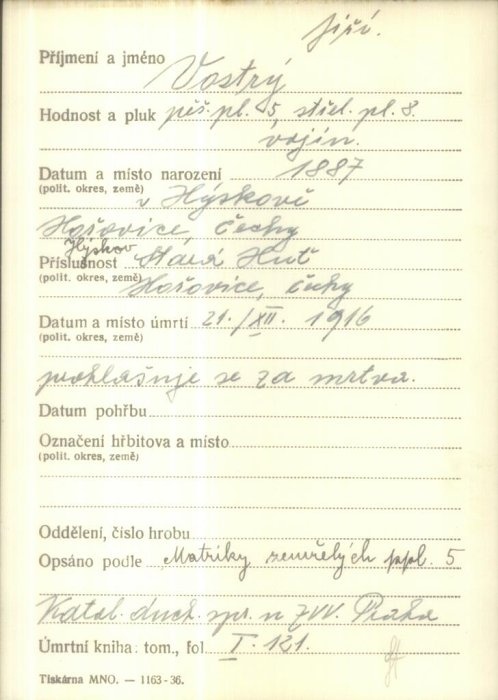 Jiří.
Příjmení a jméno Vostrý
Hodnost a pluk pěš. pl. 5, střel. pl. 8.
vojín.
Datum a místo narození 1887
(polit. okres, země) v Hýskově
Hořovice, Čechy
Hýskov
Příslušnost Stará Huť
(polit. okres, země) Hořovice, Čechy
Datum a místo úmrtí 21./XII. 1916
(polit. okres, země)
prohlašuje se za mrtva.
Datum pohřbu
Označení hřbitova a místo
(polit. okres, země)
Oddělení, číslo hrobu
Opsáno podle Matriky zemřelých ppl. 5
Katol. duch. spr. u ZVV. Praha
Úmrtní kniha: tom., fol. I. 121.
Tiskárna MNO. — 1163-36.